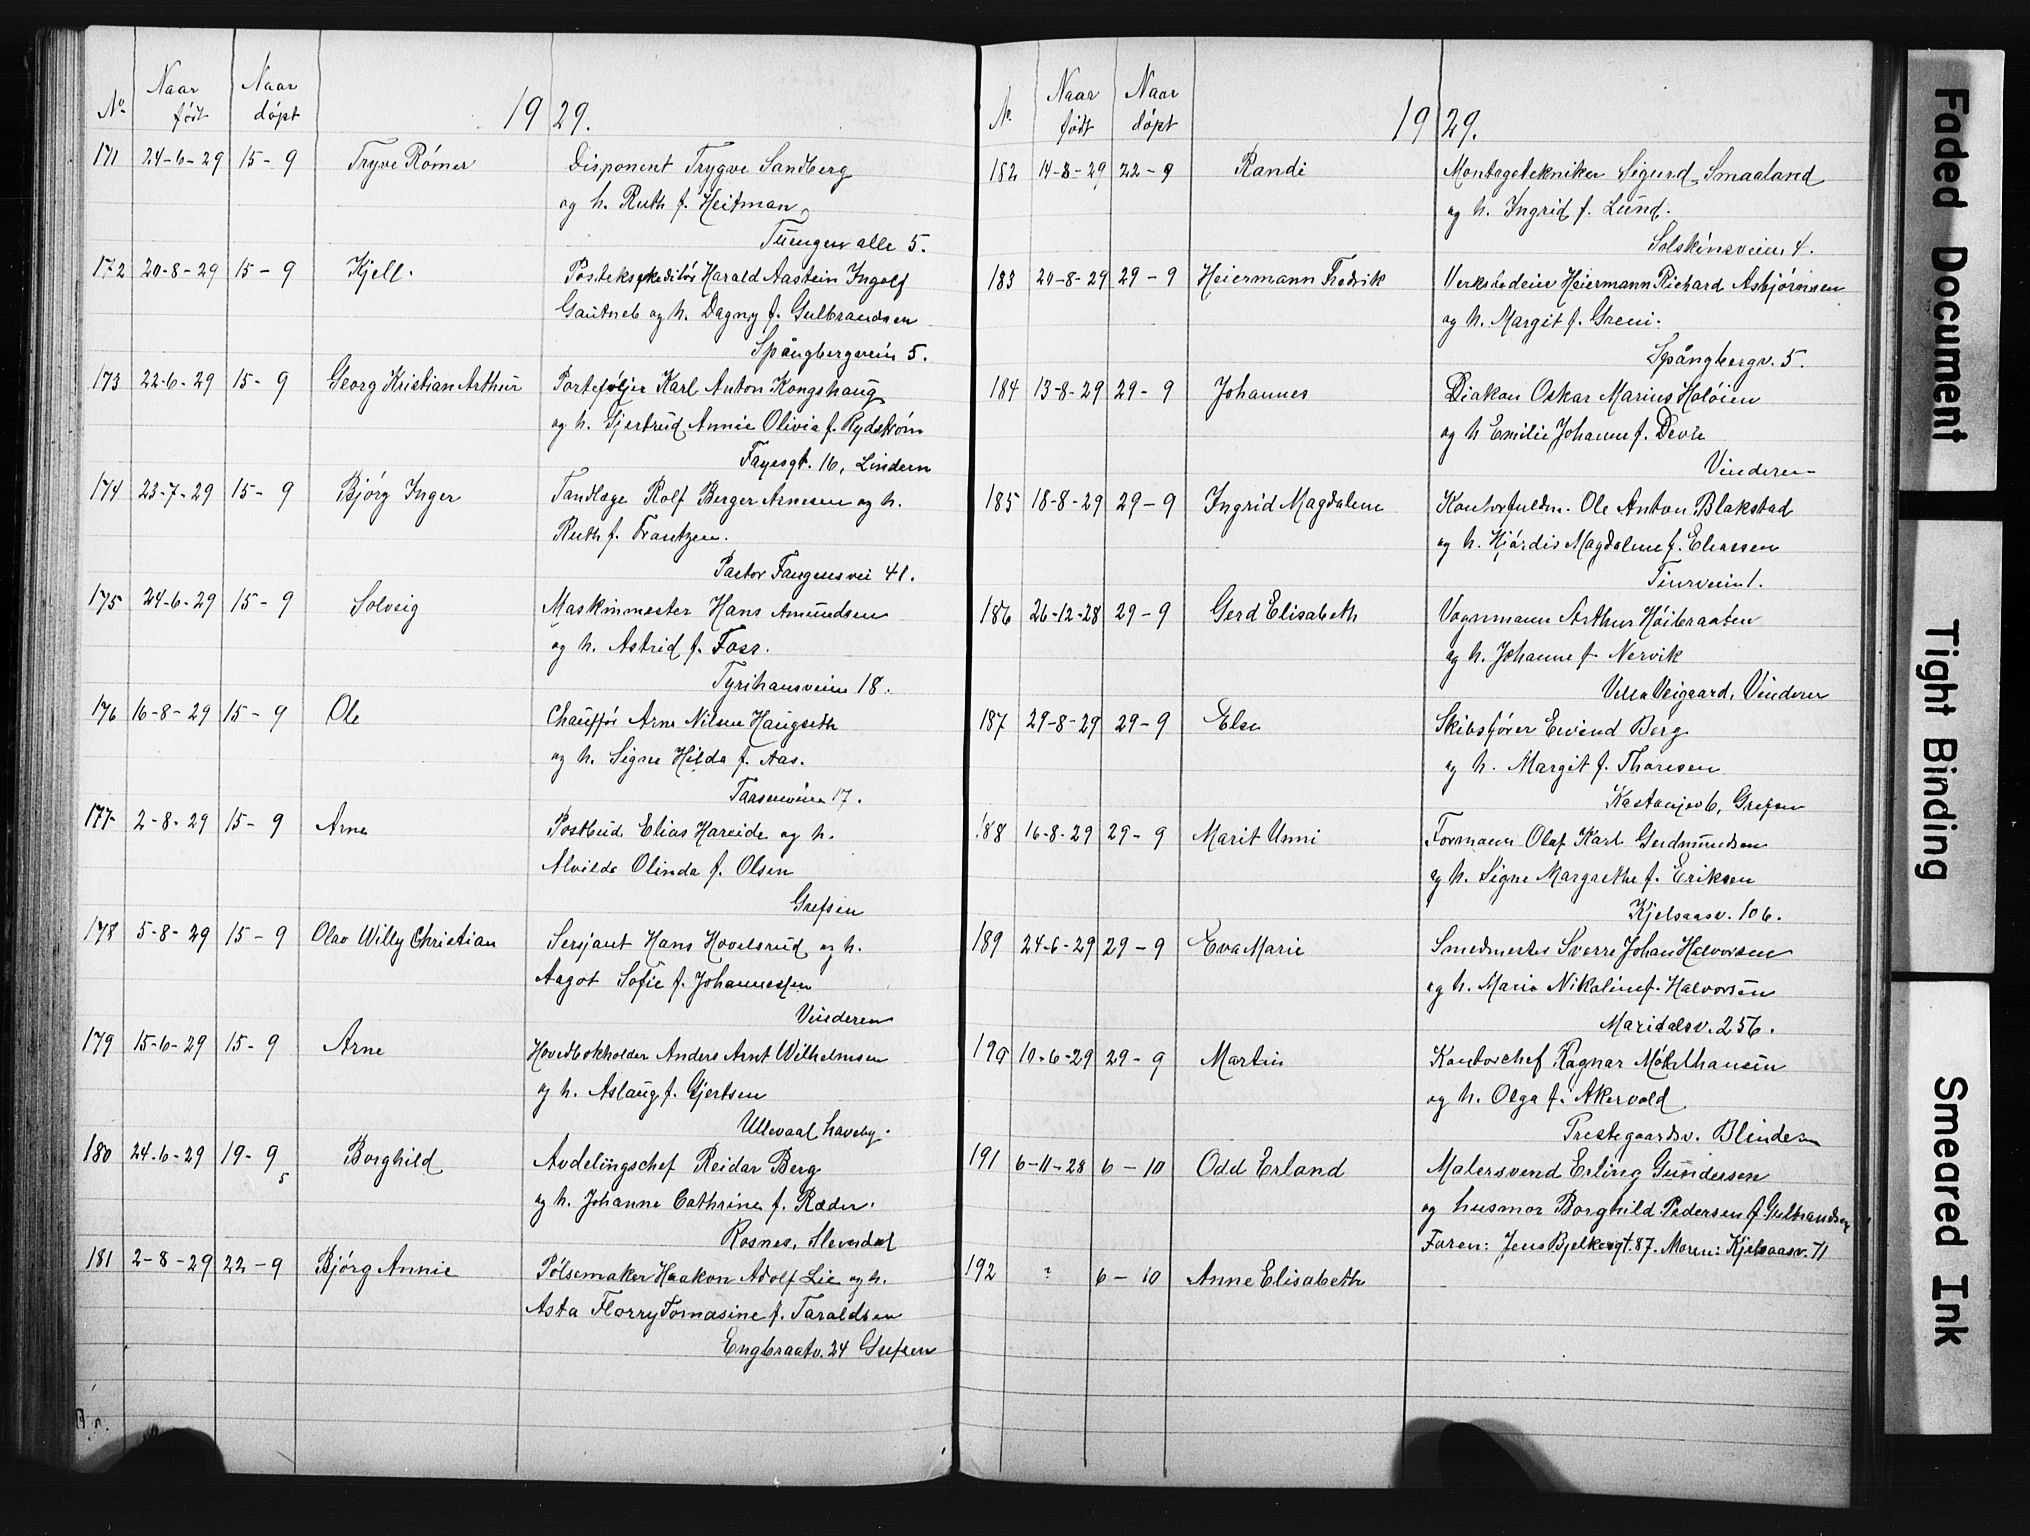 No. Naar født Naar døpt 1929.
171 24-6-29 15-9 Tryve Rómer Disponent Trygve Sandberg
og h. Ruth f. Heitman
Tuengen alle 5.
172 20-8-29 15-9 Kjell. Postekspeditór Harald Aastein Ingolf
Gautneb og h. Dagny f. Gulbrandsen
Spångbergveien 5.
173 22-6-29 15-9 Georg Kristian Arthur Portefóljer Karl Anton Kongshaug
og h. Gjertrud Annie Olivia f. Rydstróm
Fayesgt. 16, Lindern
174 23-7-29 15-9 Bjórg Inger Tandlæge Rolf Berger Arnesen og h.
Ruth f. Frantzen.
Pastor Fangens vei 41.
175 24-6-29 15-9 Solveig Maskinmester Hans Amundsen
og h. Astrid f. Foss.
Tyrihansveien 18.
176 16-8-29 15-9 Ole Chaufför Arne Nilsen Haugseth
og h. Signe Hilda f. Aas.
Taasenveien 17.
177 2-8-29 15-9 Arne Postbud Elias Hareide og h.
Alvilde Olinda f. Olsen
Grefsen
178 5-8-29 15-9 Olav Willy Christian Sersjant Hans Hovelsrud og h.
Aagot Sofie f. Johannessen
Vinderen
179 15-6-29 15-9 Arne Hovedbokholder Anders Arnt Wilhelmsen
og h. Aslaug f. Gjertsen
Ullevaal haveby.
180 24-6-29 19-9 Borghild Avdelingschef Reidar Berg
5
og h. Johanne Cathrine f. Ræder.
Rosnes, Slemdal
181 2-8-29 22-9 Bjórg Annie Pólsemaker Haakon Adolf Lie og h.
Asta Florry Tomasine f. Taraldsen
Engbraatv. 24 Grefsen
No. Naar født Naar døpt 1929.
182 14-8-29 22-9 Randi Montagetekniker Sigurd Smaaland
og h. Ingrid f. Lund.
Solskinsveien 4.
183 20-8-29 29-9 Heiermann Fredrik Verkstedeier Heiermann Richard Asbjórnsen
og h. Margit f. Greni.
Spångbergv. 5.
184 13-8-29 29-9 Johannes Diakon Oskar Marius Holóien
og h Emilie Johanne f. Devle
Vinderen
185 18-8-29 29-9 Ingrid Magdalene Kontorfuldm. Ole Anton Blakstad
og h. Hjórdis Magdalene f. Eliassen
1.
186 26-12-28 29-9 Gerd Elisabeth Vognmann Arthur Hóibraaten
og h. Johanne f. Nervik
Villa Veigaard, Vinderen
187 29-8-29 29-9 Else Skibsfórer Eivind Berg
og h. Margit f. Thoresen
Kastanjev 6, Grefsen
188 16-8-29 29-9 Marit Unni Formann Olaf Karl Gudmundsen
og h. Signe Margrethe f. Eriksen
Kjelsaasv. 106.
189 24-6-29 29-9 Eva Marie Smedmester Sverre Johan Halvorsen
og h. Marie Nikoline f. Halvorsen
Maridalsv. 256.
190 10-6-29 29-9 Martin Kontorchef Ragnar Mórlhansen
og h. Olga f. Akervold
Prestegaardsv. Blindern
191 6-11-28 6-10 Odd Erland Malersvend Erling Gundersen
og husmor Borghild Pedersen f. Gulbrandsen
Faren: Jens Bjelkesgt. 87. Moren: Kjelsaasv. 71
192 ? 6-10 Anne Elisabeth
Faded Document
Tight Binding
Smeared Ink